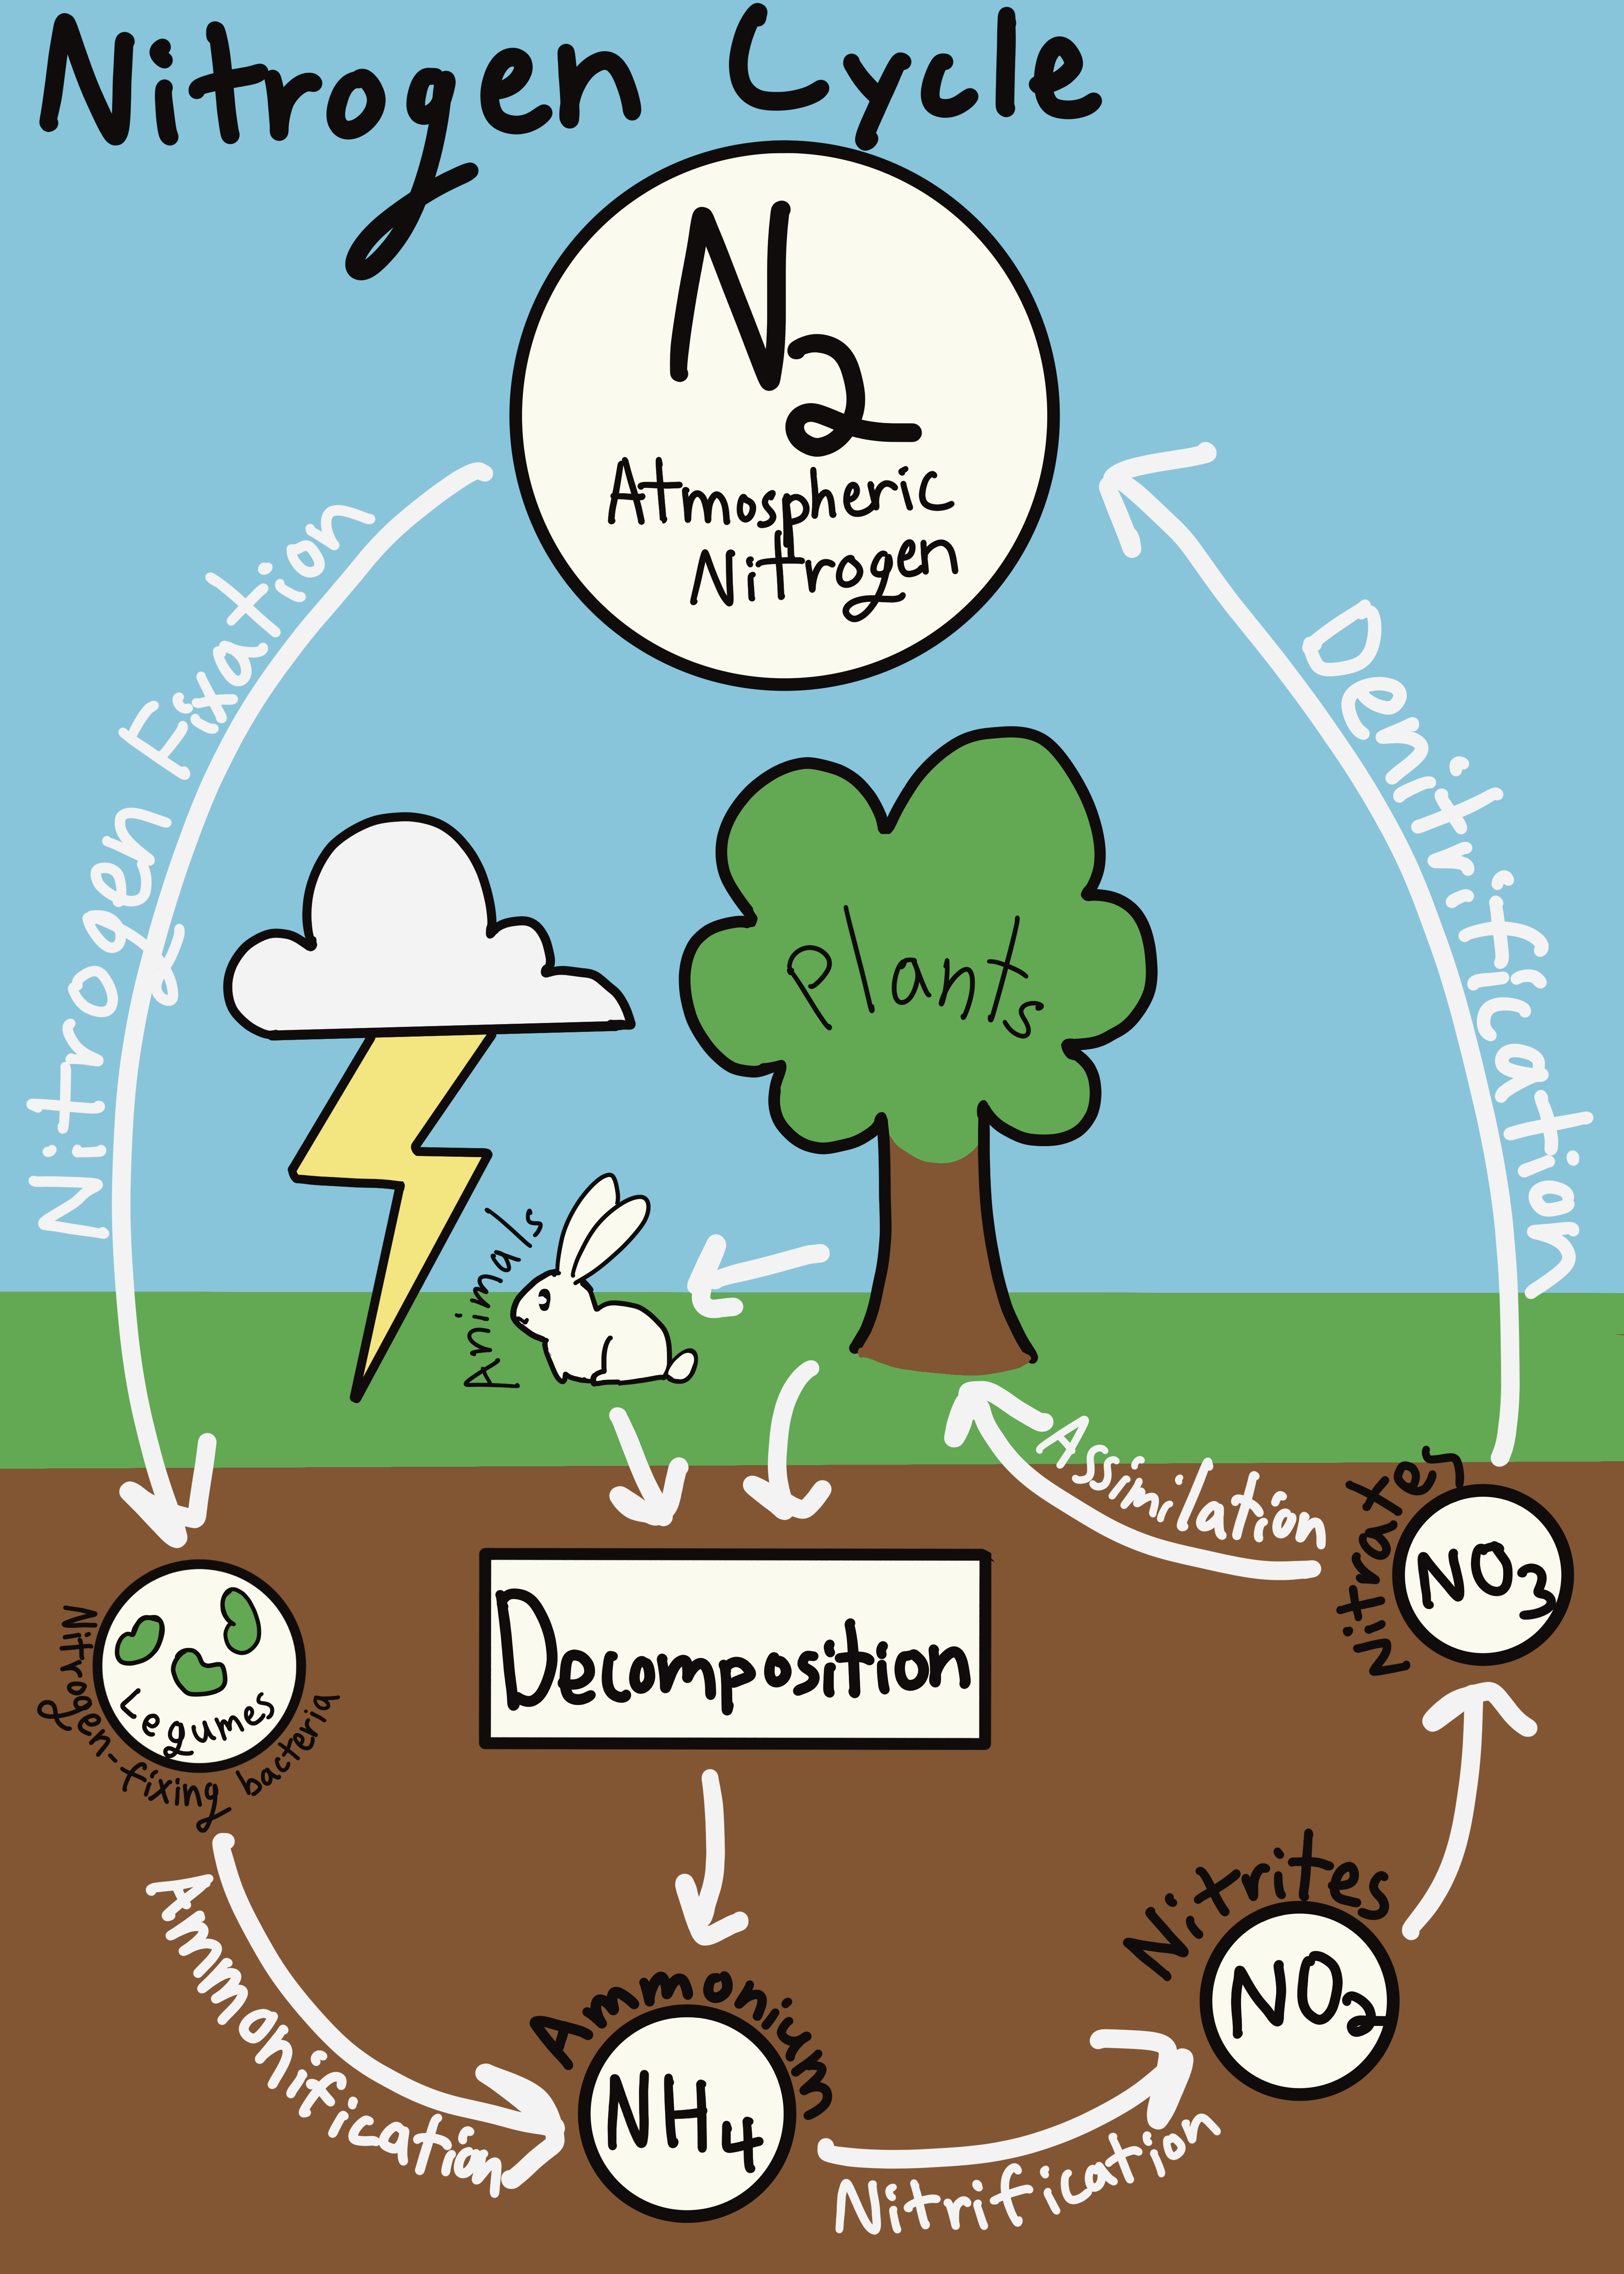 Nitrogen Cycle
N2
Atmospheric
Nitrogen
Nitrogen Fixation
Denitrification
Plants
Animals
Assimilation
Nitrates
NO3
Decomposition
Legumes
Nitrogen-fixing bacteria
Nitrites
NO2
Ammonification
Ammonium
NH4
Nitrification